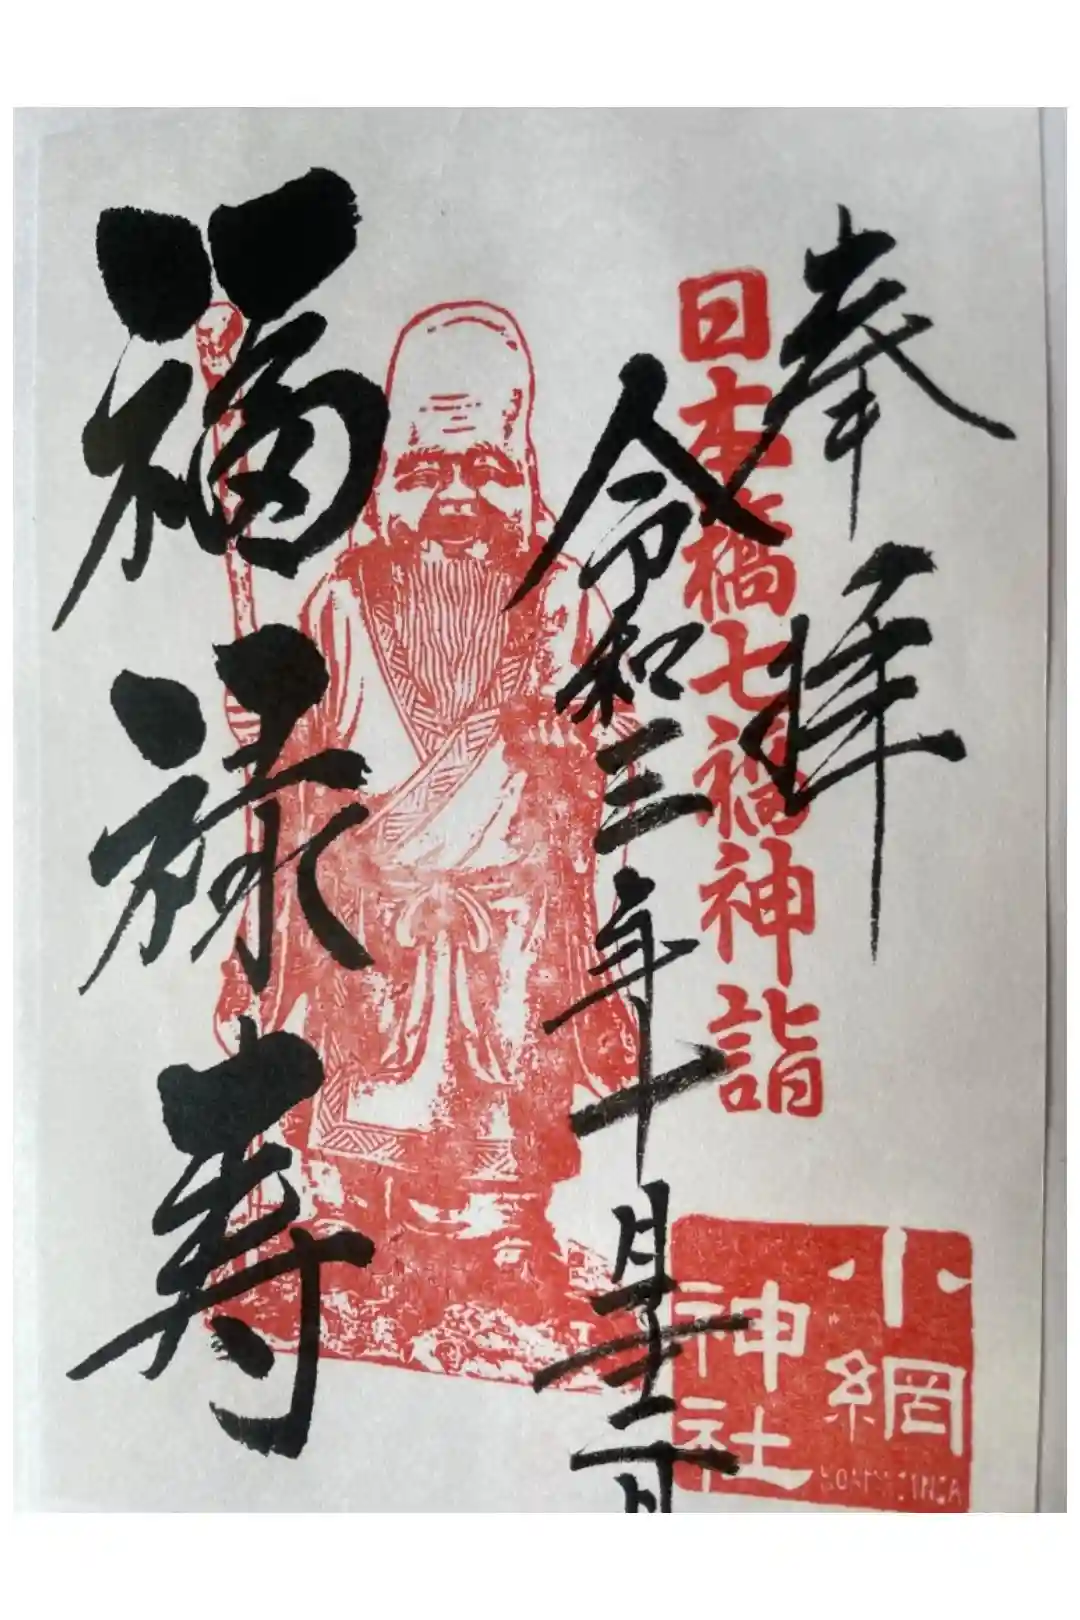 奉拝
日本橋七福神詣
令和三年十月二十二日
福禄寿
小網
神社
KOAMIJINJA